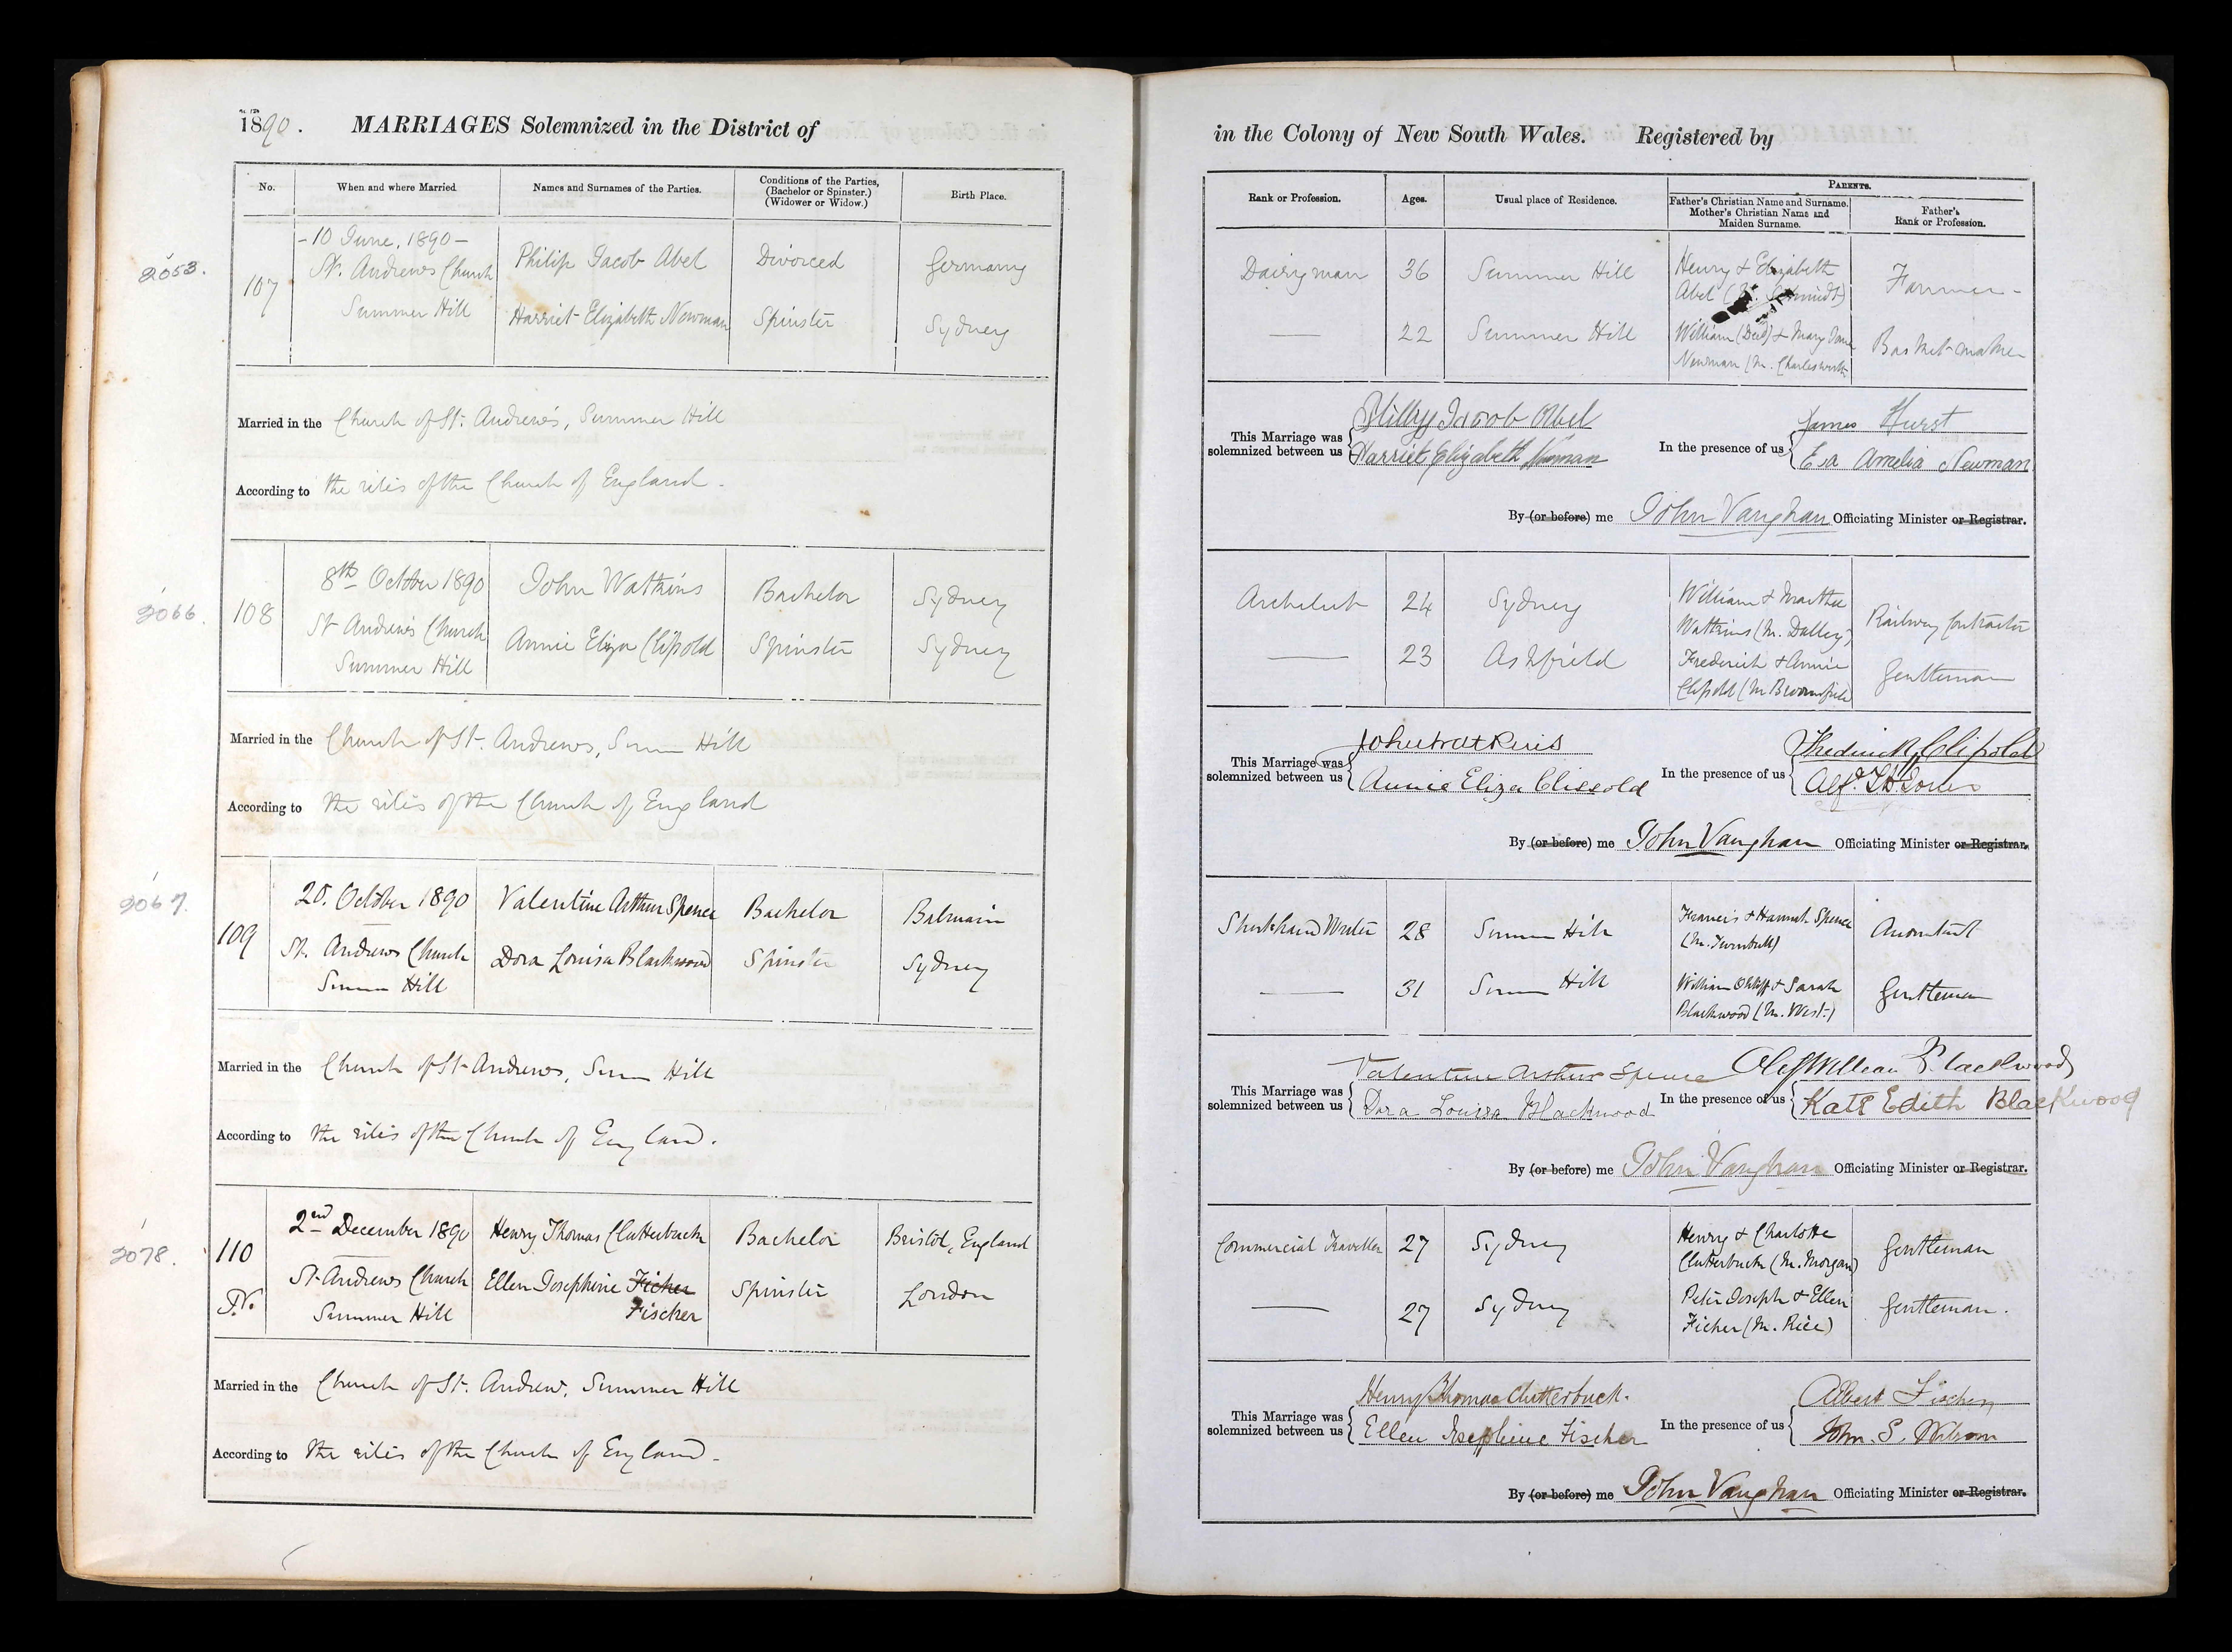 1890. MARRIAGES Solemnized in the District of
No. When and where Married. Names and Surnames of the Parties. Conditions of the Parties, (Bachelor or Spinster.) (Widower or Widow.) Birth Place.
2053.
107
- 10 June, 1890 -
St. Andrews Church
Summer Hill
Philip Jacob Abel
Harriet Elizabeth Newman
Divorced
Spinster
Germany
Sydney
Married in the Church of St. Andrew's, Summer Hill
According to the rites of the Church of England.
2066.
108
8th October 1890
St Andrew's Church
Summer Hill
John Watkins
Annie Eliza Clissold
Bachelor
Spinster
Sydney
Sydney
Married in the Church of St. Andrews, Summer Hill
According to the rites of the Church of England
2067.
109
20. October 1890
St. Andrews Church
Summer Hill
Valentine Arthur Spence
Dora Louisa Blackwood
Bachelor
Spinster
Balmain
Sydney
Married in the Church of St Andrews, Summer Hill
According to the rites of the Church of England.
2078.
110
2nd December 1890
St Andrews Church
Summer Hill
Henry Thomas Clutterbuck
Ellen Josephine Ficher
Fischer
Bachelor
Spinster
Bristol, England
London
Married in the Church of St. Andrew, Summer Hill
According to the rites of the Church of England.
in the Colony of New South Wales. Registered by
Rank or Profession. Ages. Usual place of Residence. PARENTS.
Father's Christian Name and Surname. Mother's Christian Name and Maiden Surname. Father's Rank or Profession.
Dairyman 36 Summer Hill
Henry & Elizabeth
Abel (M. Schmidt)
Farmer -
22 Summer Hill
William (Decd) & Mary Jane
Newman (M. Charlesworth
Basket-maker
This Marriage was solemnized between us
Philipp Jacob Abel
Harriet Elizabeth Newman
In the presence of us
James Hurst
Eva Amelia Newman
By (or before) me John Vaughan Officiating Minister or Registrar.
Architect 24 Sydney
William & Martha
Watkins (M. Dalley)
Railway Contractor
23 Ashfield
Frederick & Annie
Clissold (M Broomfield)
Gentleman
This Marriage was solemnized between us
John Watkins
Annie Eliza Clissold
In the presence of us
Frederick Clissold
Alf.
By (or before) me John Vaughan Officiating Minister or Registrar.
Shorthand Writer 28 Summer Hill
Francis & Hannah Spence
(M. Turnbull)
Accountant
31 Summer Hill
William & Sarah
Blackwood (M. West.)
Gentleman
This Marriage was solemnized between us
Valentine Arthur Spence
Dora Louisa Blackwood
In the presence of us
Blackwood
Kate Edith Blackwood
By (or before) me John Vaughan Officiating Minister or Registrar.
Commercial Traveller 27 Sydney
Henry & Charlotte
Clutterbuck (M. Morgan)
Gentleman
27 Sydney
Peter Joseph & Ellen
Ficher (M. Rice)
Gentleman.
This Marriage was solemnized between us
Henry Thomas Clutterbuck.
Ellen Josephine Fischer
In the presence of us
Albert Fischer
John. S. Wilson
By (or before) me John Vaughan Officiating Minister or Registrar.